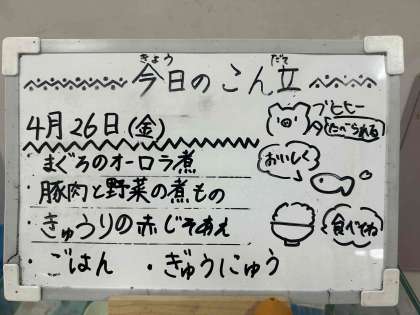 今日のこん立
きょう だて
4月26日(金)
・まぐろのオーロラ煮
・豚肉と野菜の煮もの
・きゅうりの赤じそあえ
・ごはん ・ぎゅうにゅう
たべられる
おいしく
食べてね